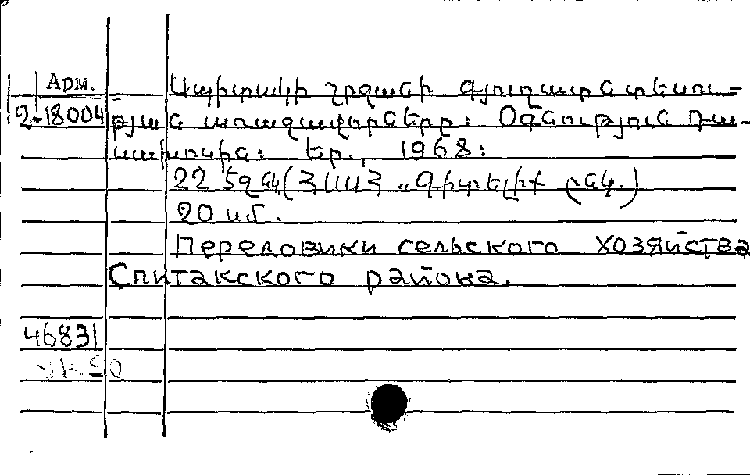 Арм. Սպիտակի շրջանի գյուղատնտեսու-
2-18004 թյան առաջավորները: Օգնություն դա-
սախոսին: Եր., 1968:
22 էջ (ՀՍՍՀ „Գիտելիք ընկ.)
20 սմ.
Передовики сельского хозяйства
Спитакского района.
46831